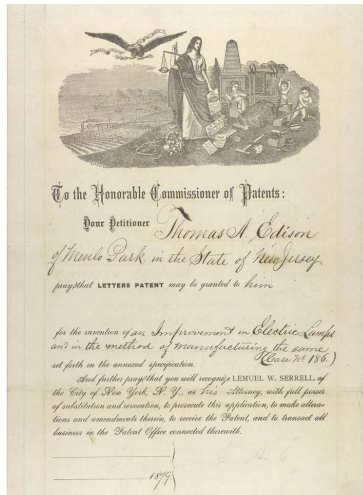 To the Honorable Commissioner of Patents:
Your Petitioner Thomas A. Edison
of Menlo Park in the State of New Jersey
prays that LETTERS PATENT may be granted to him
for the invention of an Improvement in Electric Lamps
and in the method of manufacturing the same
(Case No. 186.)
set forth in the annexed specification.
And further prays that you will recognize LEMUEL W. SERRELL, of
the City of New York, N. Y., as his Attorney, with full power
of substitution and revocation, to prosecute this application, to make altera-
tions and amendments therein, to receive the Patent, and to transact all
business in the Patent Office connected therewith.
1879